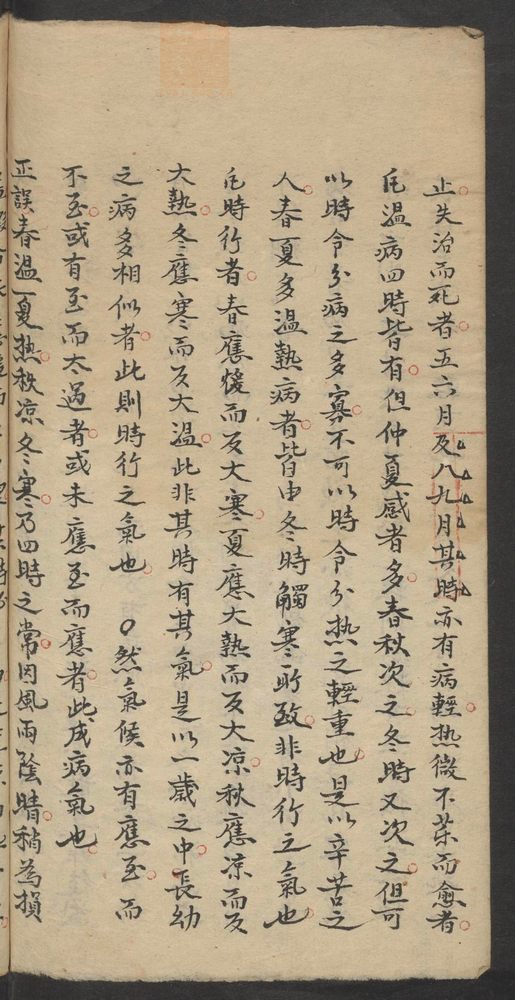 止失治而死者五六月及八九月其時亦有病輕热微不荣而愈者
凡溫病四時皆有但仲夏感者多春秋次之冬時又次之但可
以時令分病之多寡不可以時令分热之輕重也是以辛苦之
人春夏多溫熱病者皆由冬時觸寒所致非時行之氣也
凡時行者春應煖而反大寒夏應大熱而反大凉秋應凉而反
大熱冬應寒而反大溫此非其時有其氣是以一歲之中長幼
之病多相似者此則時行之氣也○然氣候亦有應至而
不至或有至而太過者或未應至而應者此成病氣也
正誤春溫夏热秋凉冬寒乃四時之常因風雨陰晴稍為損